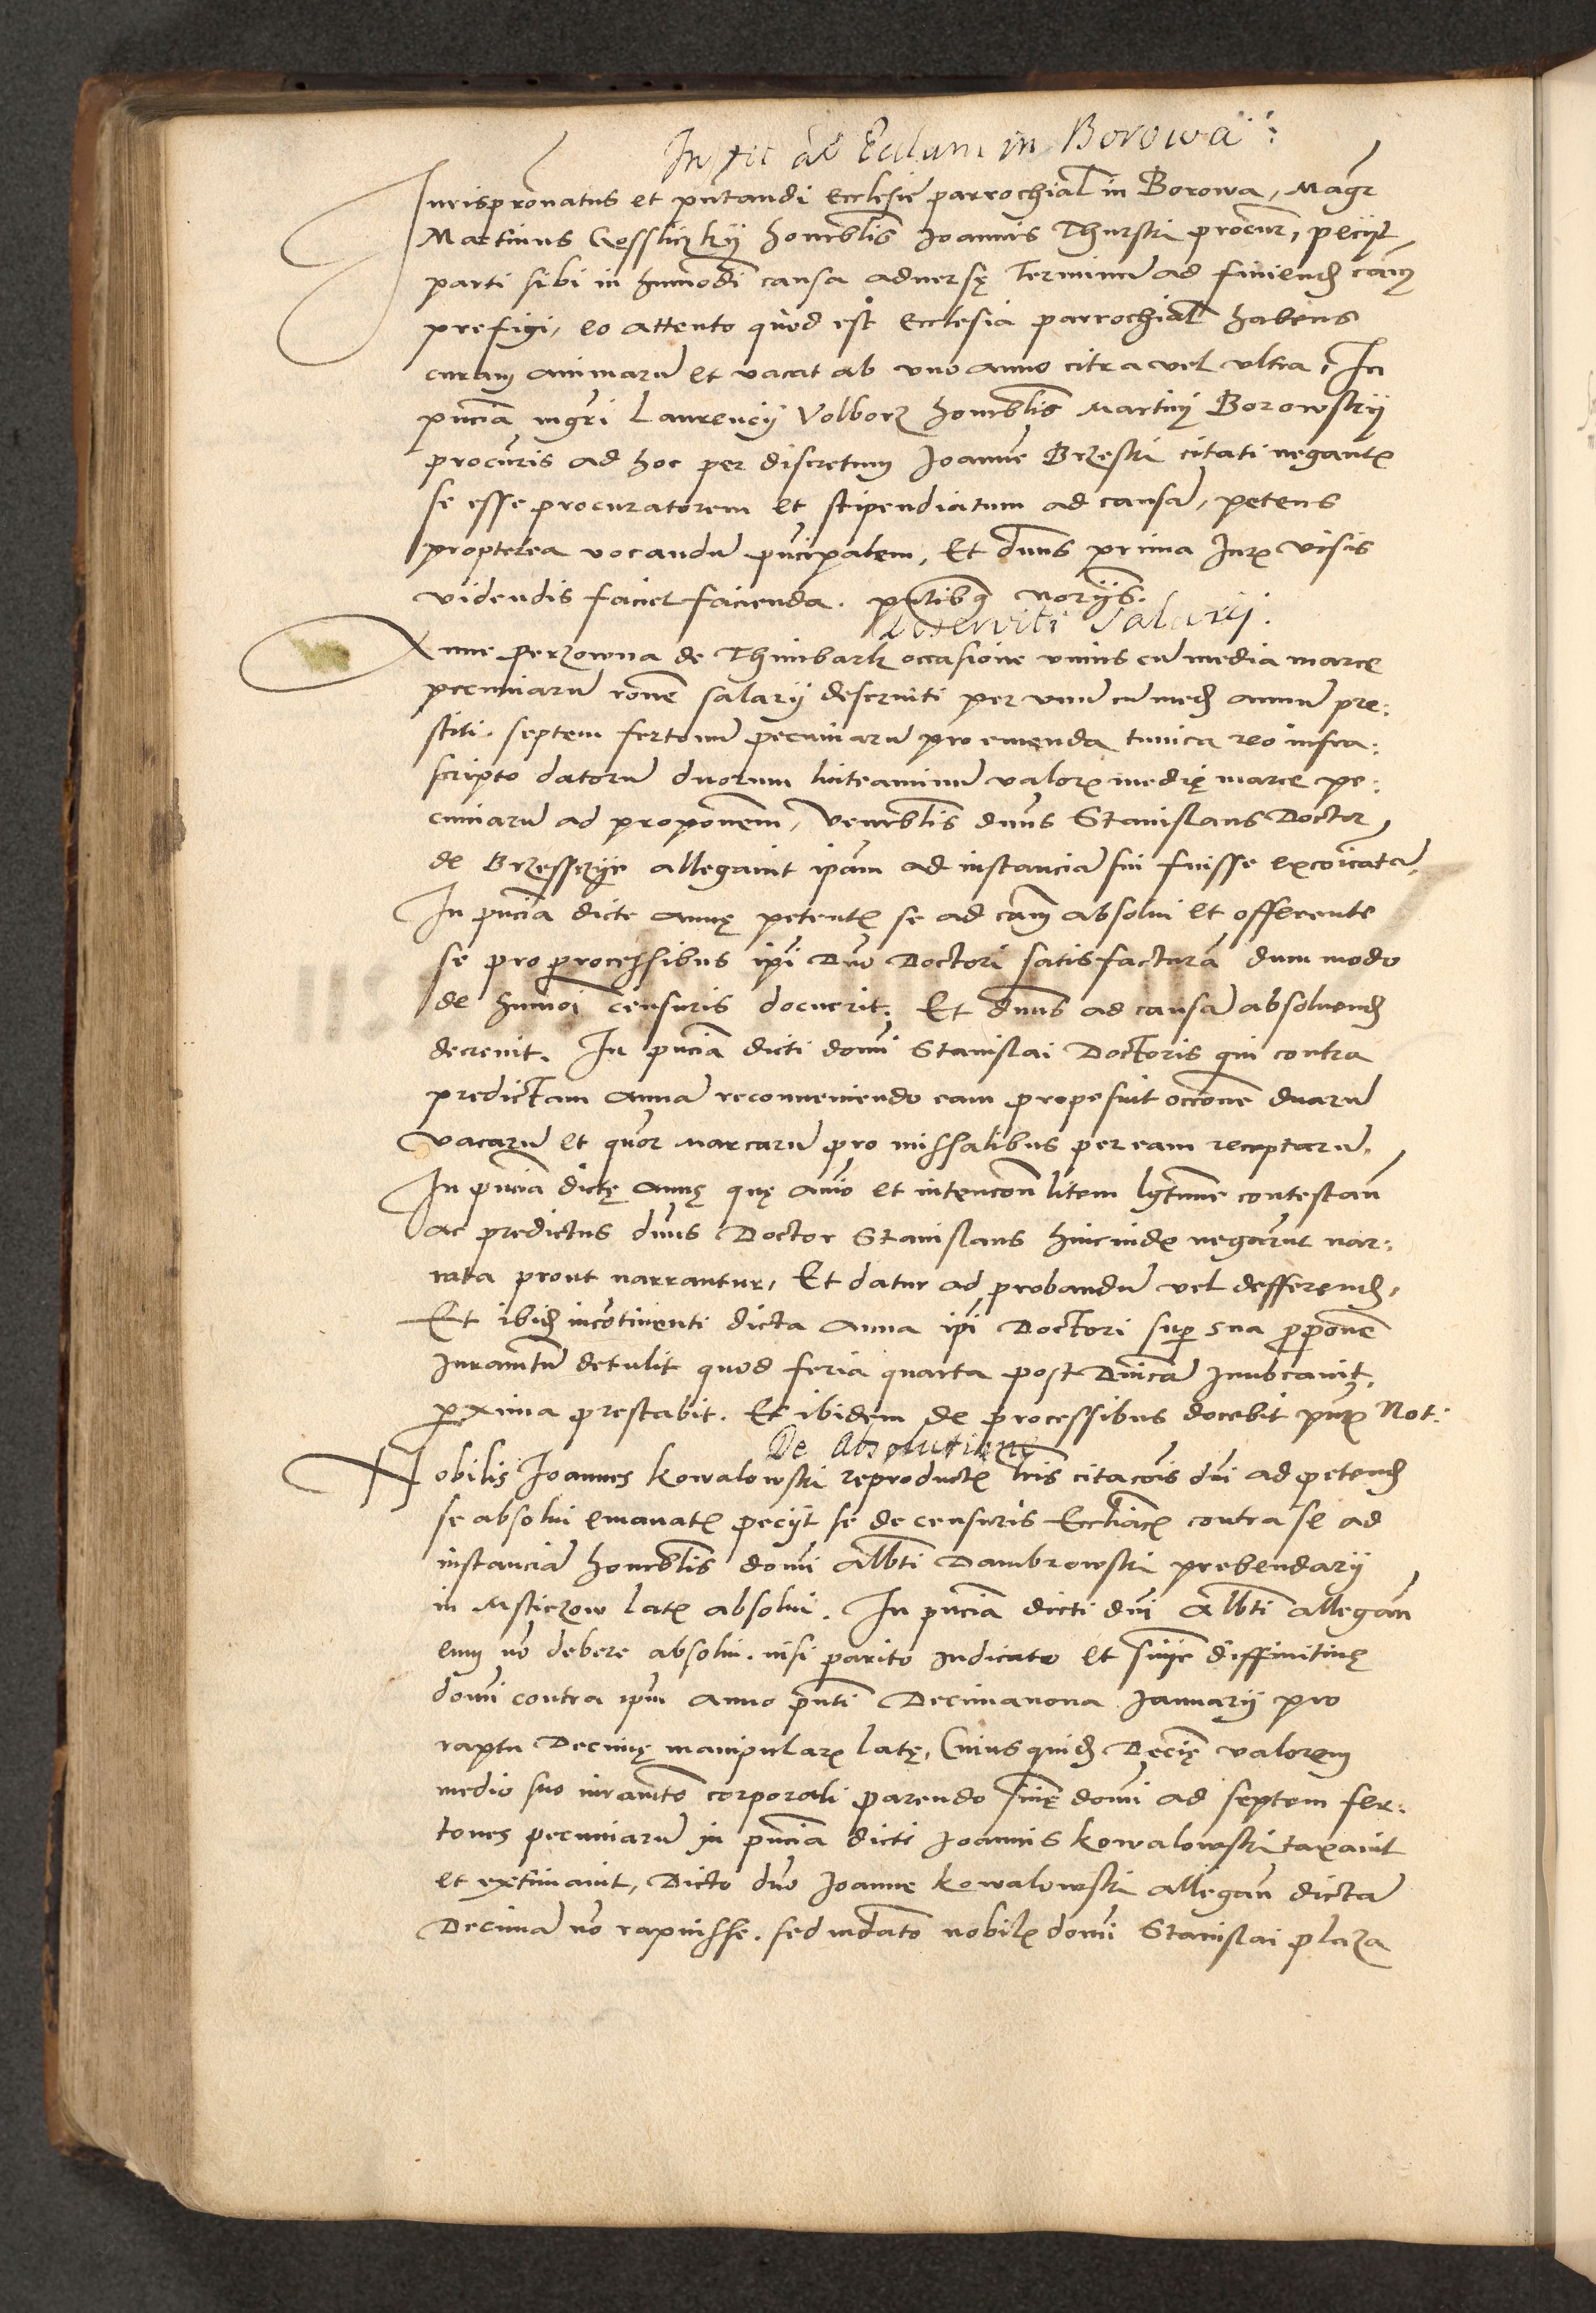 ad Ecclam in Borowa
Jurispronatus et pntandi Ecclesie parrochial in Borowa, Magr
Martinus Gossliczkij honorblis Joannis Thurski procur, peciit
parti sibi in hmnodi causa adversę terminu ad finiend cam
prefigi, eo attento quod est Ecclesia parrochial habens
curam animaru et vacat ab uno anno citra vel ultra, In
pncia mgri Laurencij Volborz honorblis Martini Borowskij
procuris ad hoc per discretum Joanne Brzeski citati negante
se esse procuratorem et stipendiatum ad causa, petens
propterea vocandu pncipalem, Et dnus prima Jur visis
videndis faciet facienda. pntibq norijs.
Deserviti Salarij.
Anne Perzowna de Thimbark occasione unius cu media marce
pecuniaru rone salarij deserviti per unu cu med annu pre:
stiti. septem fertonu pecuniaru pro emenda tunica reo infra:
scripto datoru duorum linteaminu valore medię marce pe:
cuniaru ad proponem, Venerblis dnus Stanislaus Doctor
de Brzessczye allegavit ipam ad instancia sui fuisse excoicata,
In pncia dicte Annę petente se ad cam absolui et offerente
se pro processibus ipi Dno Doctori satisfactura dum modo
de hmnoi censuris docuerit. Et dnus ad causa absoluend
decrevit. In pncia dicti domi Stanislai Doctoris qui contra
predictam Anna reconueniendo eam proposuit occone duaru
vacaru et quor marcaru pro missalibus per eam receptaru,
In pncia dictę Annę quę aio et intencon litem lgtime contestan
ac predictus dnus Doctor Stanislaus hincinde negarunt nar:
rata prout narrantur, Et datur ad probandu vel defferend,
Et ibid incontinenti dicta Anna ipi Doctori super sua propone
Juramtu detulit quod feria quarta post Dnica Invocavit
proxima prestabit. Et ibidem de processibus docebit pnte Not:
De Absolutione
Nobilis Joannes Kowalowski reproducte lris citacois dni ad petend
se absolui emanate peciit se de censuris Eccliace contra se ad
instancia honorblis domi Albti Dambrowski prebendarij
in Msticzow late absolui. In pncia dicti dni Albti allegan
eum no debere absolui. nisi parito Judicato et snie diffinitivę
domi contra ipm Anno pnti Decimanona Januarij pro
raptu Decimę manipulare latę, Cuiusquid Decie valorem
medio suo iuramto corporali parendo snię domi ad septem fer:
tones pecuniaru in pncia dicti Joannis Kowalowski taxavit
et extimavit, Dicto dno Joanne Kowalowski allegan dicta
Decima no rapuisse. sed mdato nobile domi Stanislai Plaza